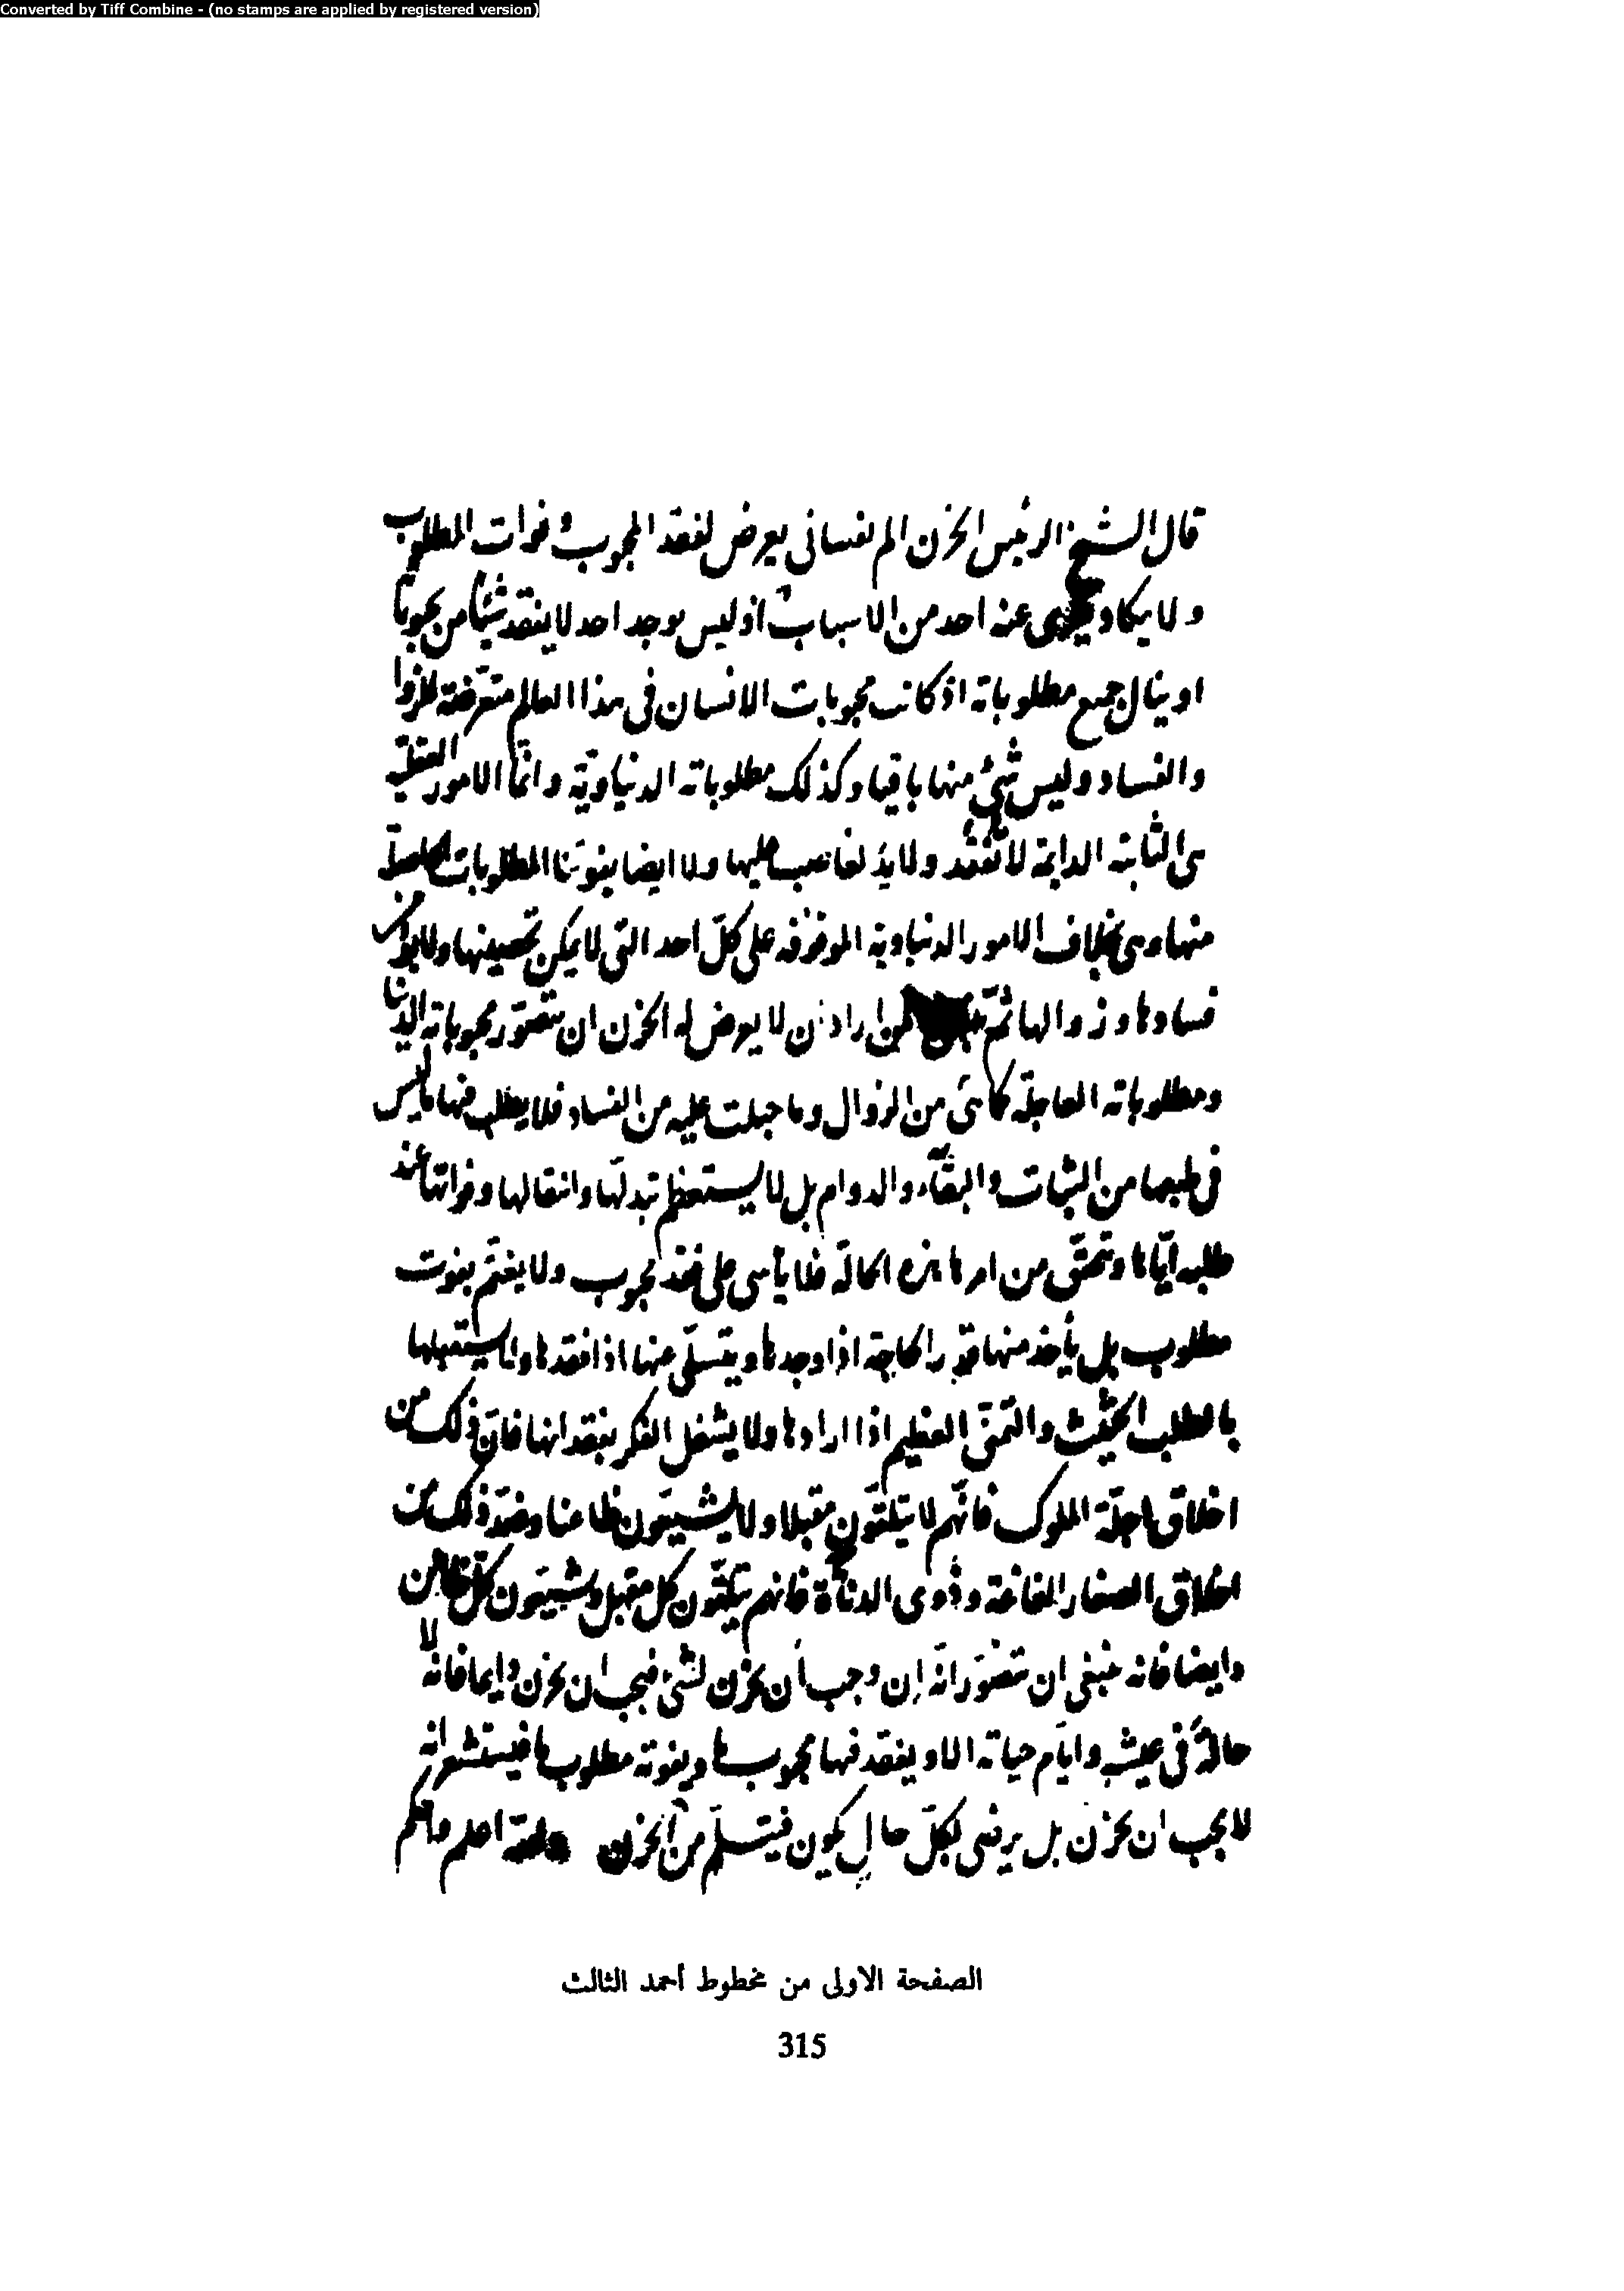 Converted by Tiff Combine - (no stamps are applied by registered version)
قال الشيخ الرئيس الحزن الم نفسانى يعرض لفقد المحبوب وفوات المطلوب
ولا يكاد يعرى عنه احد من الاسباب اذ ليس يوجد احد لا يفقد شيئا من
او ينال جميع مطلوباته اذ كانت محبوبات الانسان فى هذا العالم متعرضة للزوا
والفساد وليس شئ منها باقيا وكذلك مطلوباته الدنياوية وانما الامور العقلية
هى الثابتة الدايمة لا تفقد ولا يد لغاصب عليها ولا ايضا يفوتنا المطلوبات
منها وهى بخلاف الامور الدنياوية الموقوفة على كل احد التى لا يمكن تحصينها ولا
فسادها وزوالها ثم لمن اراد ان لا يعرض له الحزن ان يتصور محبوباته
ومطلوباته العاجلة كما هى من الزوال وما جبلت عليه من الفساد فلا يطلب فيها ما ليس
فى طبعها من الثبات والبقاء والدوام بل لا يستعظم تبدلها وانتقالها وفواتها عند
طلبه اياها وتحقق من امرها هذه الحالة فلا يأسى على فقد محبوب ولا يغتم بفوت
مطلوب بل يأخذ منها قدر الحاجة اذا وجدها ويتسلى عنها اذا فقدها ولا يستقبلها
بالطلب الحثيث والتمنى العظيم اذا ارادها ولا يشغل الفكر بفقدانها فان ذلك من
اخلاق اجلة الملوك فانهم لا يتلقون مقبلا ولا يشيعون ظاعنا وضد ذلك من
اخلاق الصغار العامة وذوى الدناءة فانهم يتلقون كل مقبل ويشيعون كل ظاعن
وايضا فانه ينبغى ان يتصور انه ان وجب أن يحزن لشئ فيجب ان يحزن دايما فانه لا
حالة فى عيشه وايام حياته الا ويفقد فيها محبوب ما ويفوته مطلوب ما فيستشعر انه
لا يجب ان يحزن بل يرضى بكل حال يكون فيتسلم من الحزن والله اعلم واحكم
الصفحة الاولى من مخطوط أحمد الثالث
315